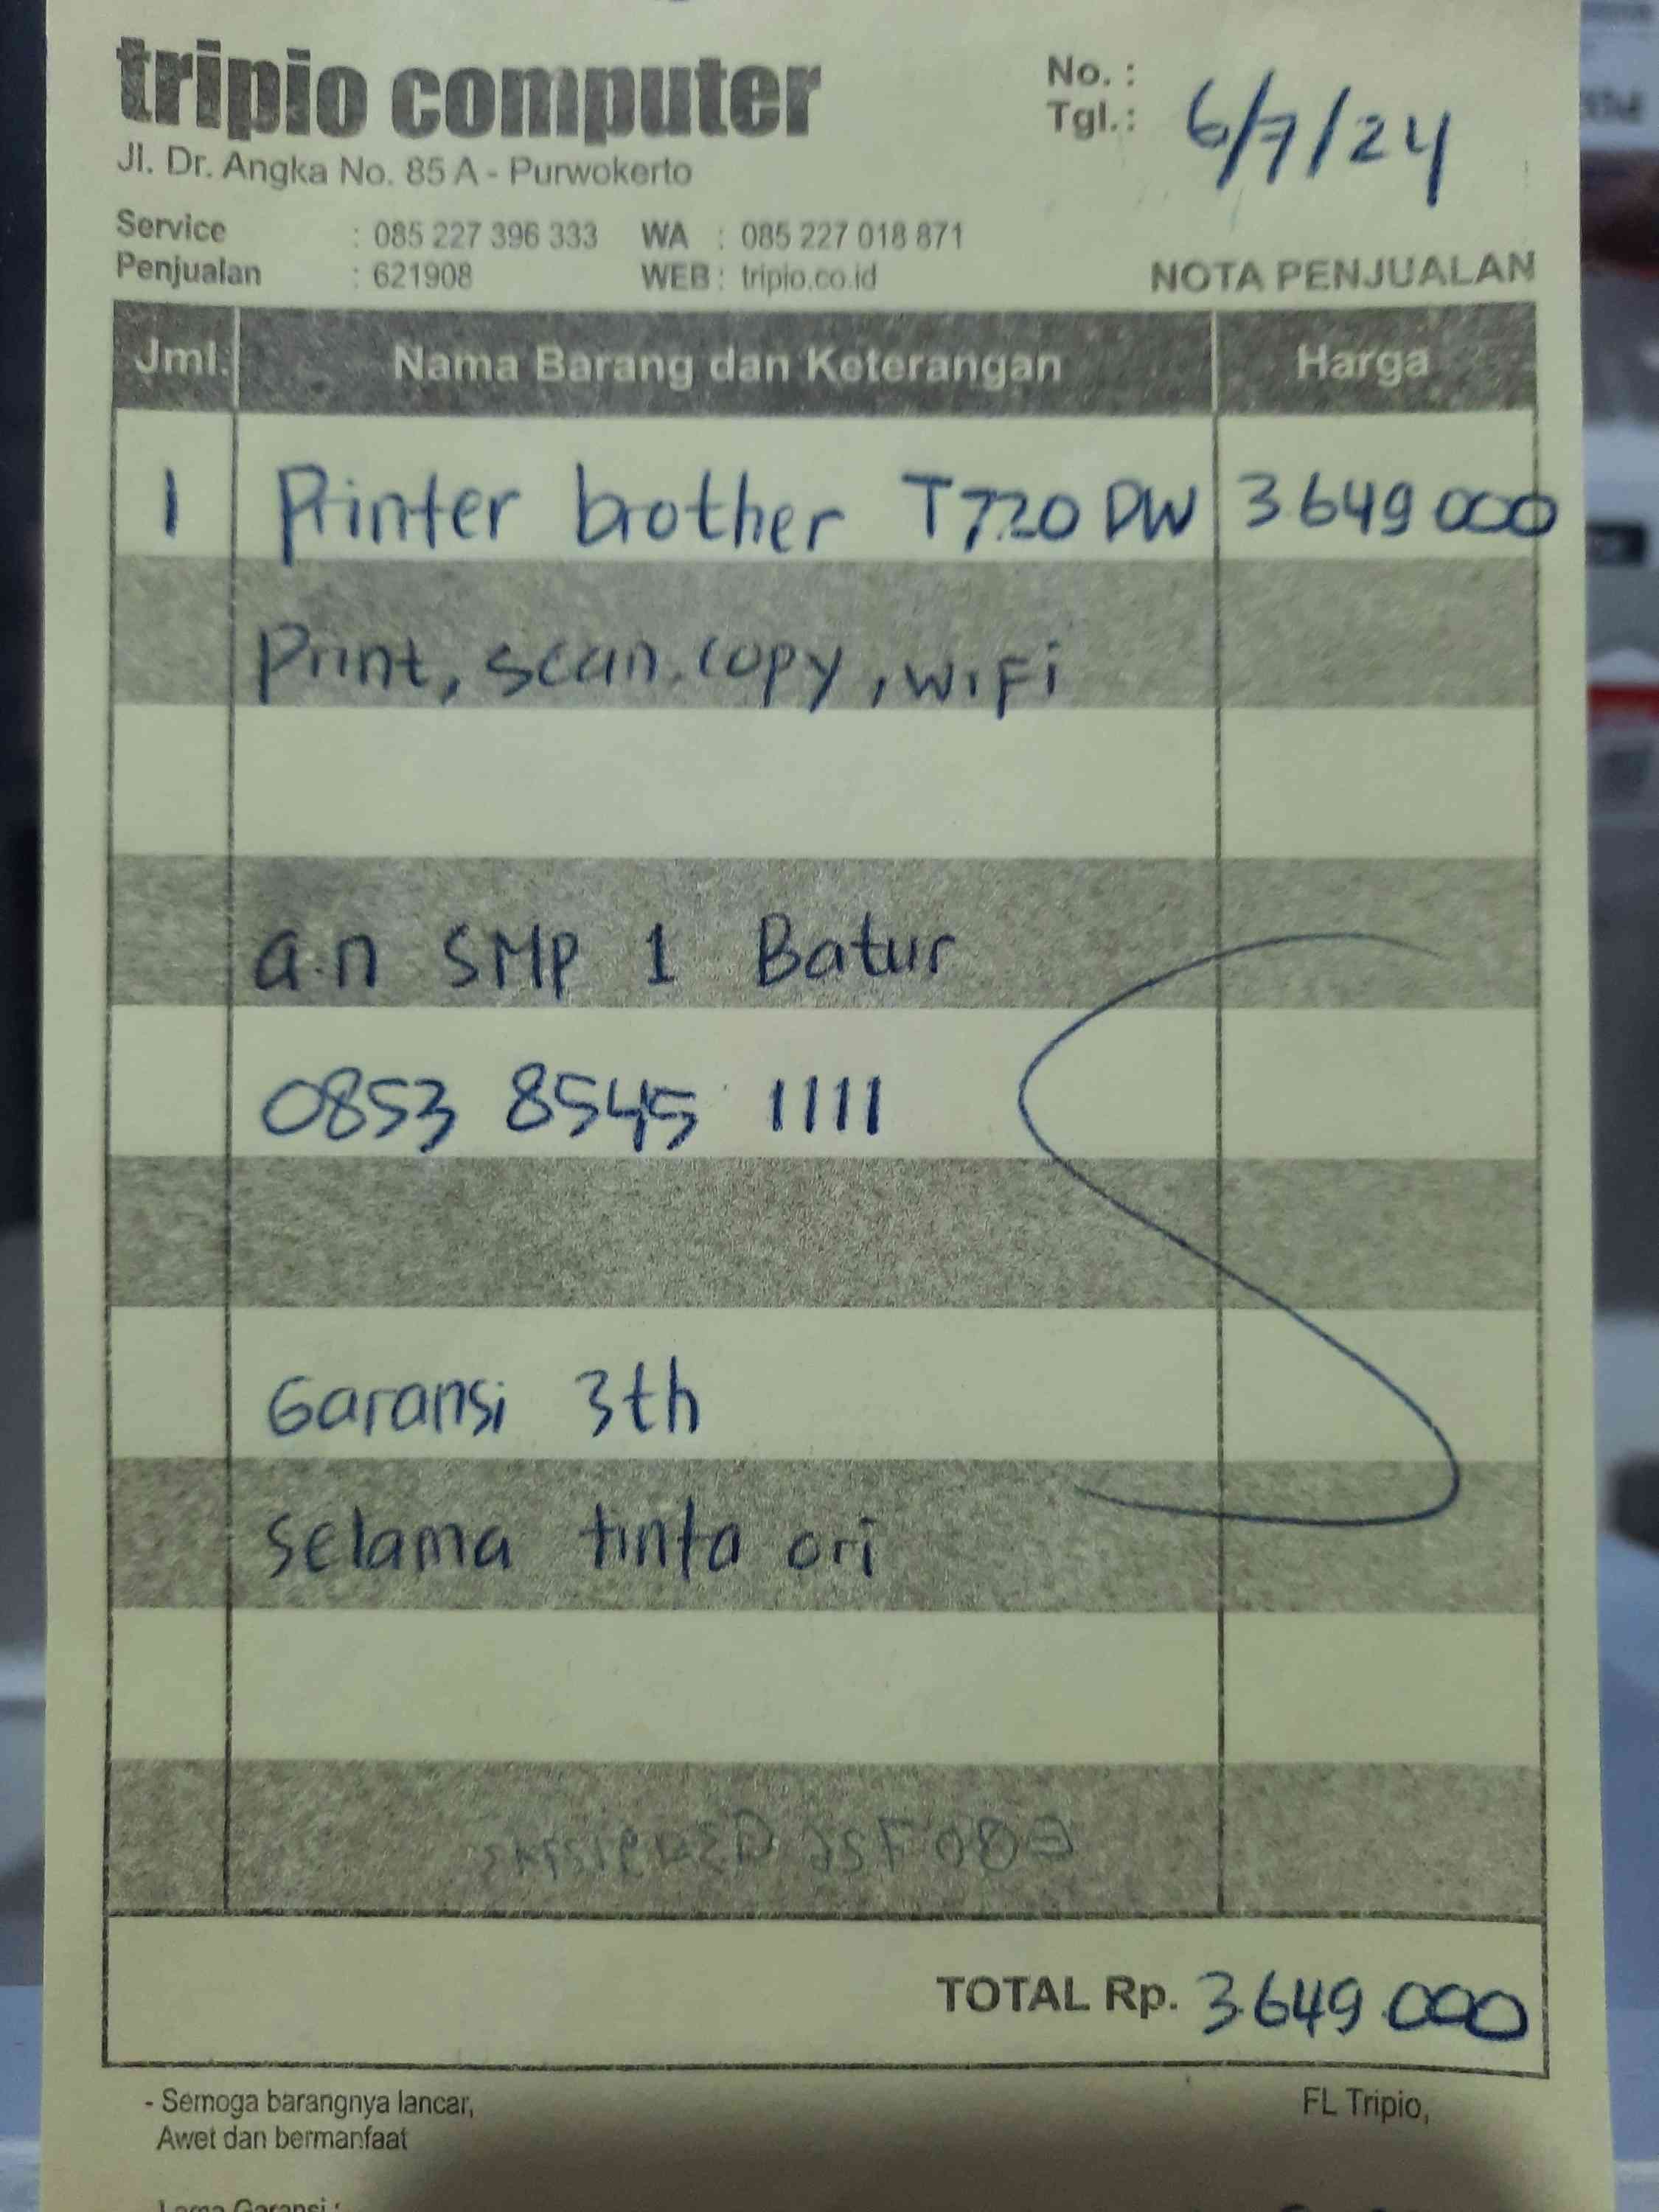 tripio computer
Jl. Dr. Angka No. 85 A - Purwokerto
No. :
Tgl.: 6/7/24
Service : 085 227 396 333 WA : 085 227 018 871
Penjualan : 621908 WEB : tripio.co.id
NOTA PENJUALAN
Jml. Nama Barang dan Keterangan Harga
1 Printer brother T720 DW 3649 000
Print, scan, copy, wiFi
a.n SMP 1 Batur
0853 8545 1111
Garansi 3th
selama tinta ori
TOTAL Rp. 3.649.000
- Semoga barangnya lancar,
Awet dan bermanfaat
FL Tripio,
Lama Garansi :